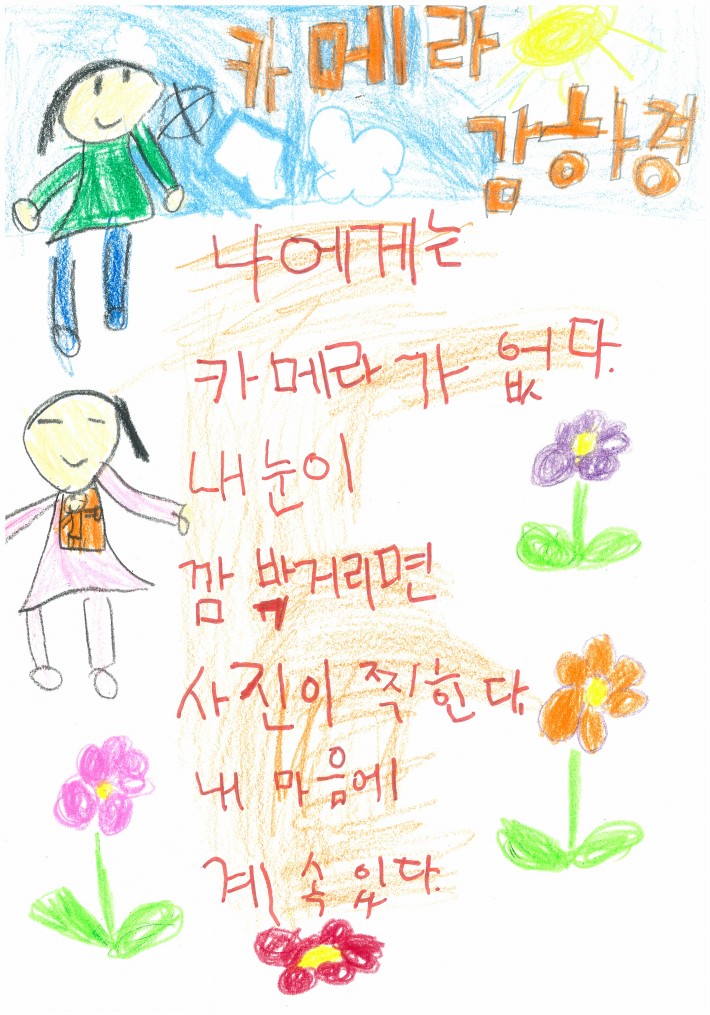 카메라
김하경
나에게는
카메라가 없다.
내 눈이
깜 빡거리면
사진이 찍힌다.
내 마음에
계속 있다.